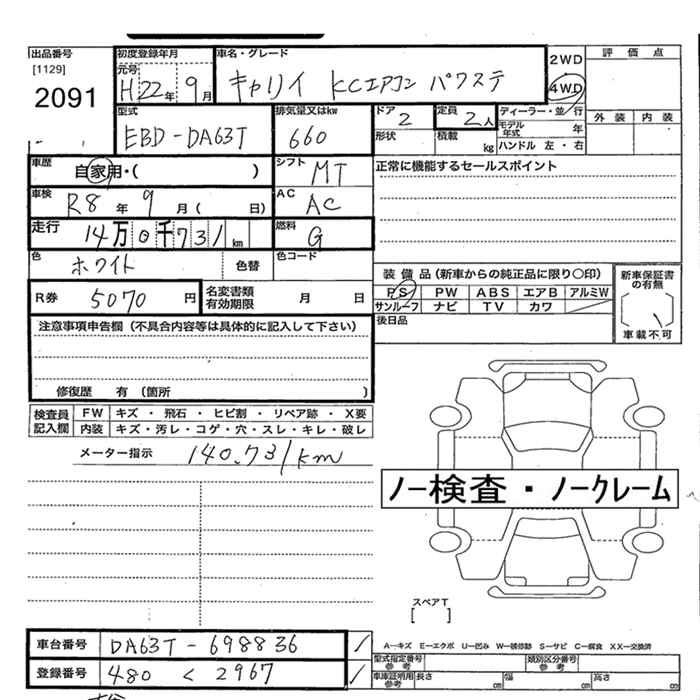 出品番号 [1129] 2091
初度登録年月 元号 H22年 9月
車名・グレード キャリイ KCエアコン パワステ
2WD 4WD
評価点
外装 内装
型式 EBD-DA63T
排気量又はkw 660
ドア 2 形状
定員 2人 積載 kg
ディーラー・並行
モデル年式 年
ハンドル 左・右
車歴 自家用・( )
シフト MT
正常に機能するセールスポイント
車検 R8年 9月( 日)
AC AC
走行 14万0千731km
燃料 G
色 ホワイト 色替
色コード
R券 5070円
名変書類有効期限 月 日
装備品(新車からの純正品に限り○印)
PS PW ABS エアB アルミW
サンルーフ ナビ TV カワ
新車保証書の有無
車載不可
後日品
注意事項申告欄(不具合内容等は具体的に記入して下さい)
修復歴 有(箇所 )
検査員記入欄
FW キズ・飛石・ヒビ割・リペア跡・X要
内装 キズ・汚レ・コゲ・穴・スレ・キレ・破レ
メーター指示 140,731km
ノー検査・ノークレーム
スペアT
[ ]
車台番号 DA63T-698836
登録番号 480 く 2967
A…キズ E…エクボ U…凹み W…補修跡 S…サビ C…腐食 XX…交換済
型式指定番号参考
類別区分番号参考
車庫証明用参考 長さ cm 幅 cm 高さ cm